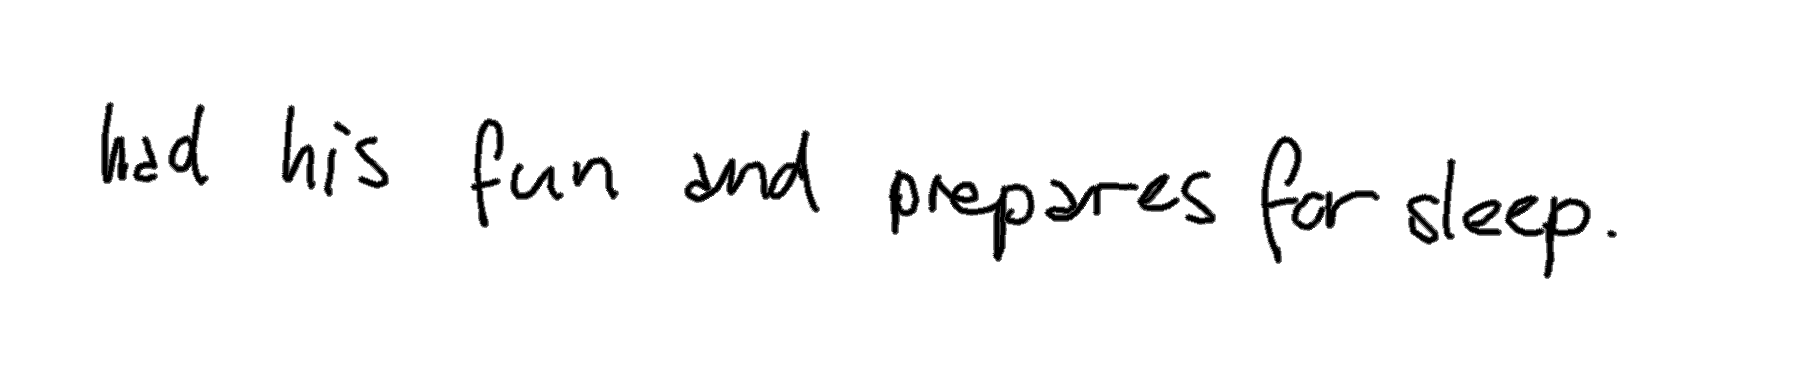 had his fun and prepares for sleep.